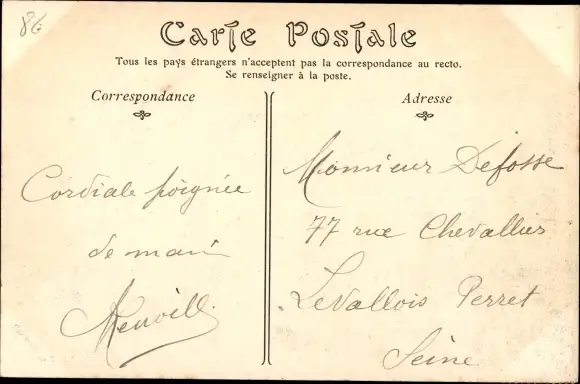 86
Carte Postale
Tous les pays étrangers n'acceptent pas la correspondance au recto.
Se renseigner à la poste.
Correspondance
Cordiale poignée
de main
Adresse
Monsieur Defosse
77 rue Chevallier
Levallois Perret
Seine